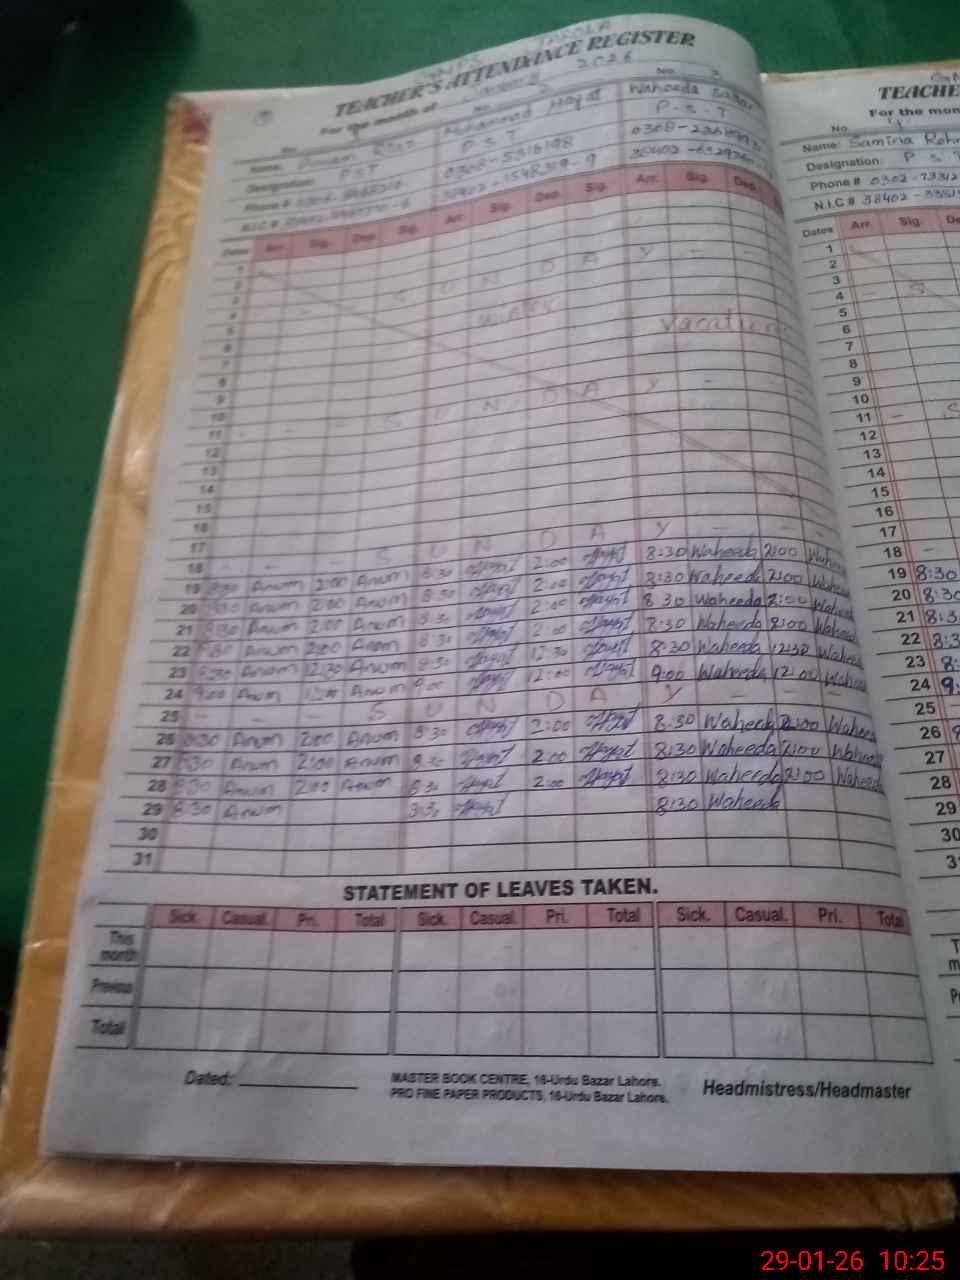 TEACHER'S ATTENDANCE REGISTER
For the month of January 2026
No. No. No. 3
Name: Anam Muhammad Hayat Waheeda
Designation: PST P S T P - S - T
Phone # 0308-5316198
N.I.C #
Dates Arr. Sig. Dep. Sig. Arr. Sig. Dep. Sig. Arr. Sig. Dep.
1
2
3
4 - - - S U N D A Y - -
5 winter vacations
6
7
8
9
10
11 - - - S U N D A Y - -
12
13
14
15
16
17
18 - - - S U N D A Y - - -
19 8:30 Anum 2:00 Anum 8:30 Hayat 2:00 Hayat 8:30 Waheeda 2:00 Waheeda
20 8:30 Anum 2:00 Anum 8:30 Hayat 2:00 Hayat 8:30 Waheeda 2:00 Waheeda
21 8:30 Anum 2:00 Anum 8:30 Hayat 2:00 Hayat 8 30 Waheeda 2:00 Waheeda
22 8:30 Anum 2:00 Anum 8:30 Hayat 2:00 Hayat 8:30 Waheeda 2:00 Waheeda
23 8:30 Anum 12:30 Anum 8:30 Hayat 12:30 Hayat 8:30 Waheeda 12:30 Waheeda
24 9:00 Anum 12:00 Anum 9:00 Hayat 12:00 Hayat 9:00 Waheeda 12:00 Waheeda
25 - - - S U N D A Y - - -
26 8:30 Anum 2:00 Anum 8:30 Hayat 2:00 Hayat 8:30 Waheeda 2:00 Waheeda
27 8:30 Anum 2:00 Anum 8:30 Hayat 2:00 Hayat 8:30 Waheeda 2:00 Waheeda
28 8:30 Anum 2:00 Anum 8:30 Hayat 2:00 Hayat 8:30 Waheeda 2:00 Waheeda
29 8:30 Anum 8:30 Hayat 8:30 Waheeda
30
31
STATEMENT OF LEAVES TAKEN.
Sick. Casual. Pri. Total Sick. Casual. Pri. Total Sick. Casual. Pri. Total
This month
Previous
Total
Dated:
MASTER BOOK CENTRE, 16-Urdu Bazar Lahore.
PRO FINE PAPER PRODUCTS, 16-Urdu Bazar Lahore.
Headmistress/Headmaster
TEACHE
For the mon
No. 4
Name: Samina
Designation: P S T
Phone # 0302-
N.I.C # 38402-
Dates Arr. Sig.
1
2
3
4 - S
5
6
7
8
9
10
11 - S
12
13
14
15
16
17
18 -
19 8:30
20 8:30
21 8:3
22 8:3
23 8:
24 9:
25 -
26
27
28
29
30
29-01-26 10:25